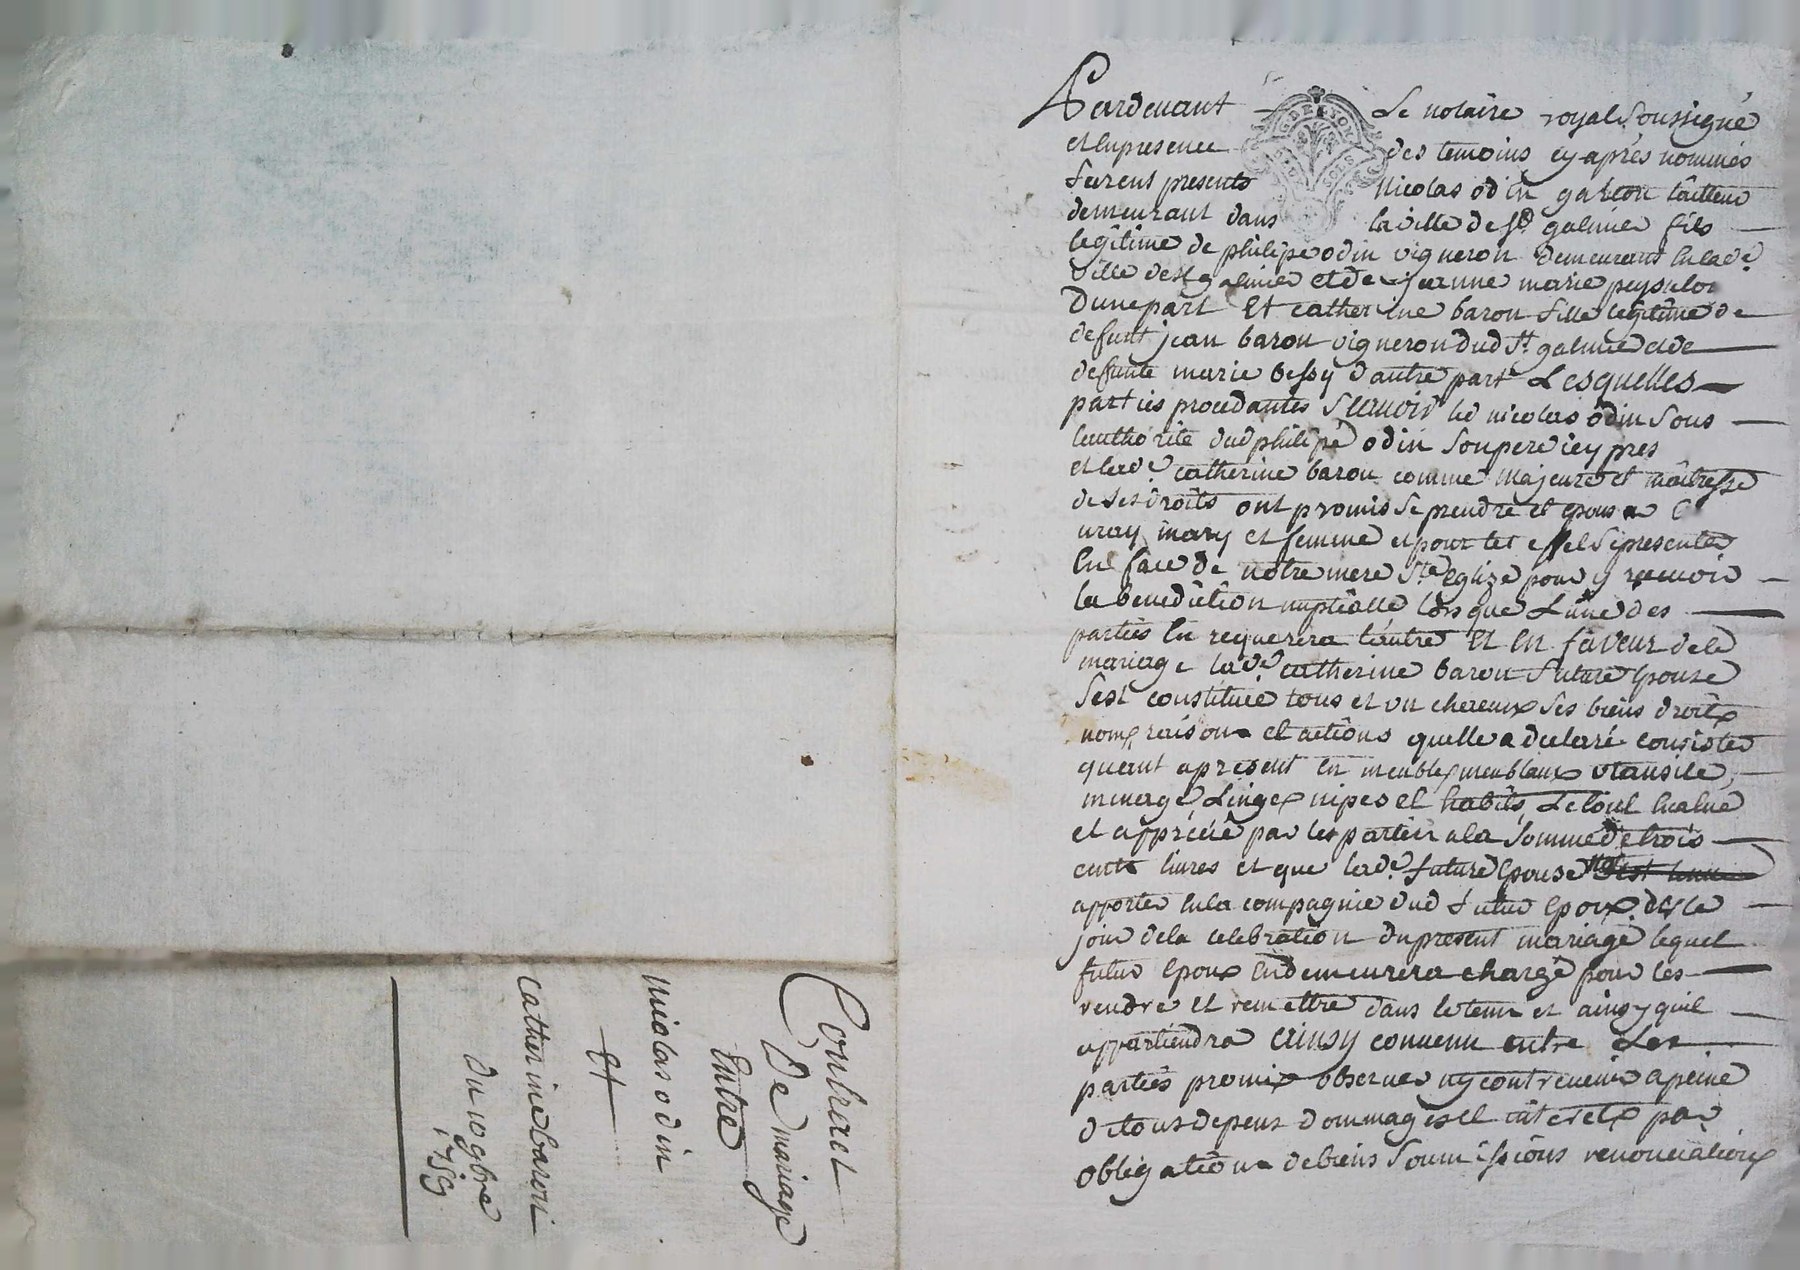 Contract
De mariage
Entre
nicolas odin
Et
catherine baron
Du 10 9bre
Pardevant Le notaire royal Soussigné
et En presence des temoins cy après nommés
furent presents Nicolas odin garcon
demeurant dans la ville de St galmier fils
legitime de philipe odin vigneron demeurant En lade
ville de St galmier et de jeanne marie
Dune part Et catherine baron fille legitime de
defunt jean baron vigneron dud St galmier et de
defunte marie bessy d'autre part Lesquelles
parties procedantes Scavoir led nicolas odin Sous
lauthorité dud philipe odin Son pere icy pres
et lade catherine baron comme Majeure et maitresse
de Ses droits ont promis Se prendre et epouser
vray mary et femme et pour cet effet Se presenter
En face de notre mere Ste Eglize pour y recevoir
la benediction nuptialle lors que L'une des
parties En requerera l'autre Et En faveur de ce
mariage lade catherine baron future Epouze
Sest constituée tous et un chacuns Ses biens droits
noms raisons et actions quelle a declaré consister
quant a present En meubles meublans utansile
menage Linges nipes et habits Le tout Evalué
et apprécié par les parties a la Somme de trois
cents livres et que lade future Epouse
apporter En la compagnie dud futur Epoux des le
jour de la celebration du present mariage lequel
futur Epoux En demeurera chargé pour les
rendre et remettre dans le tems et ainsy quil
appartiendra ainsy convenu entre Les
parties promis observer ny contrevenir a peine
de tous depens dommages et interets par
obligations de biens Soumissions renonciations